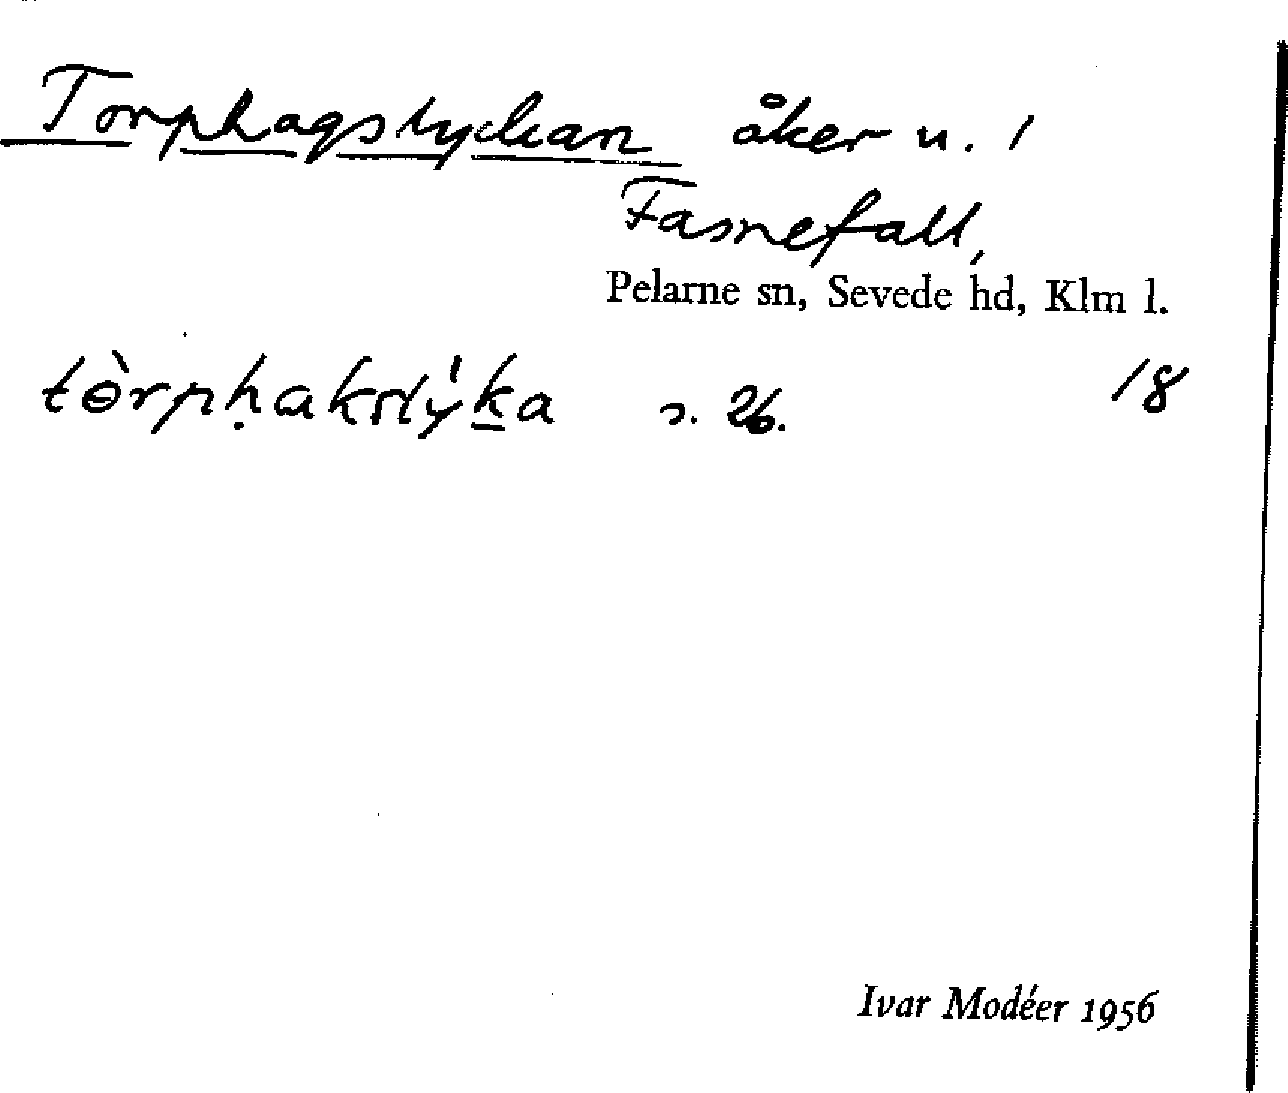 Torphagstyckan åker u. 1
Fasnefall,
Pelarne sn, Sevede hd, Klm l.
tòrpḥakstýḵa s. 26. 18
Ivar Modéer 1956